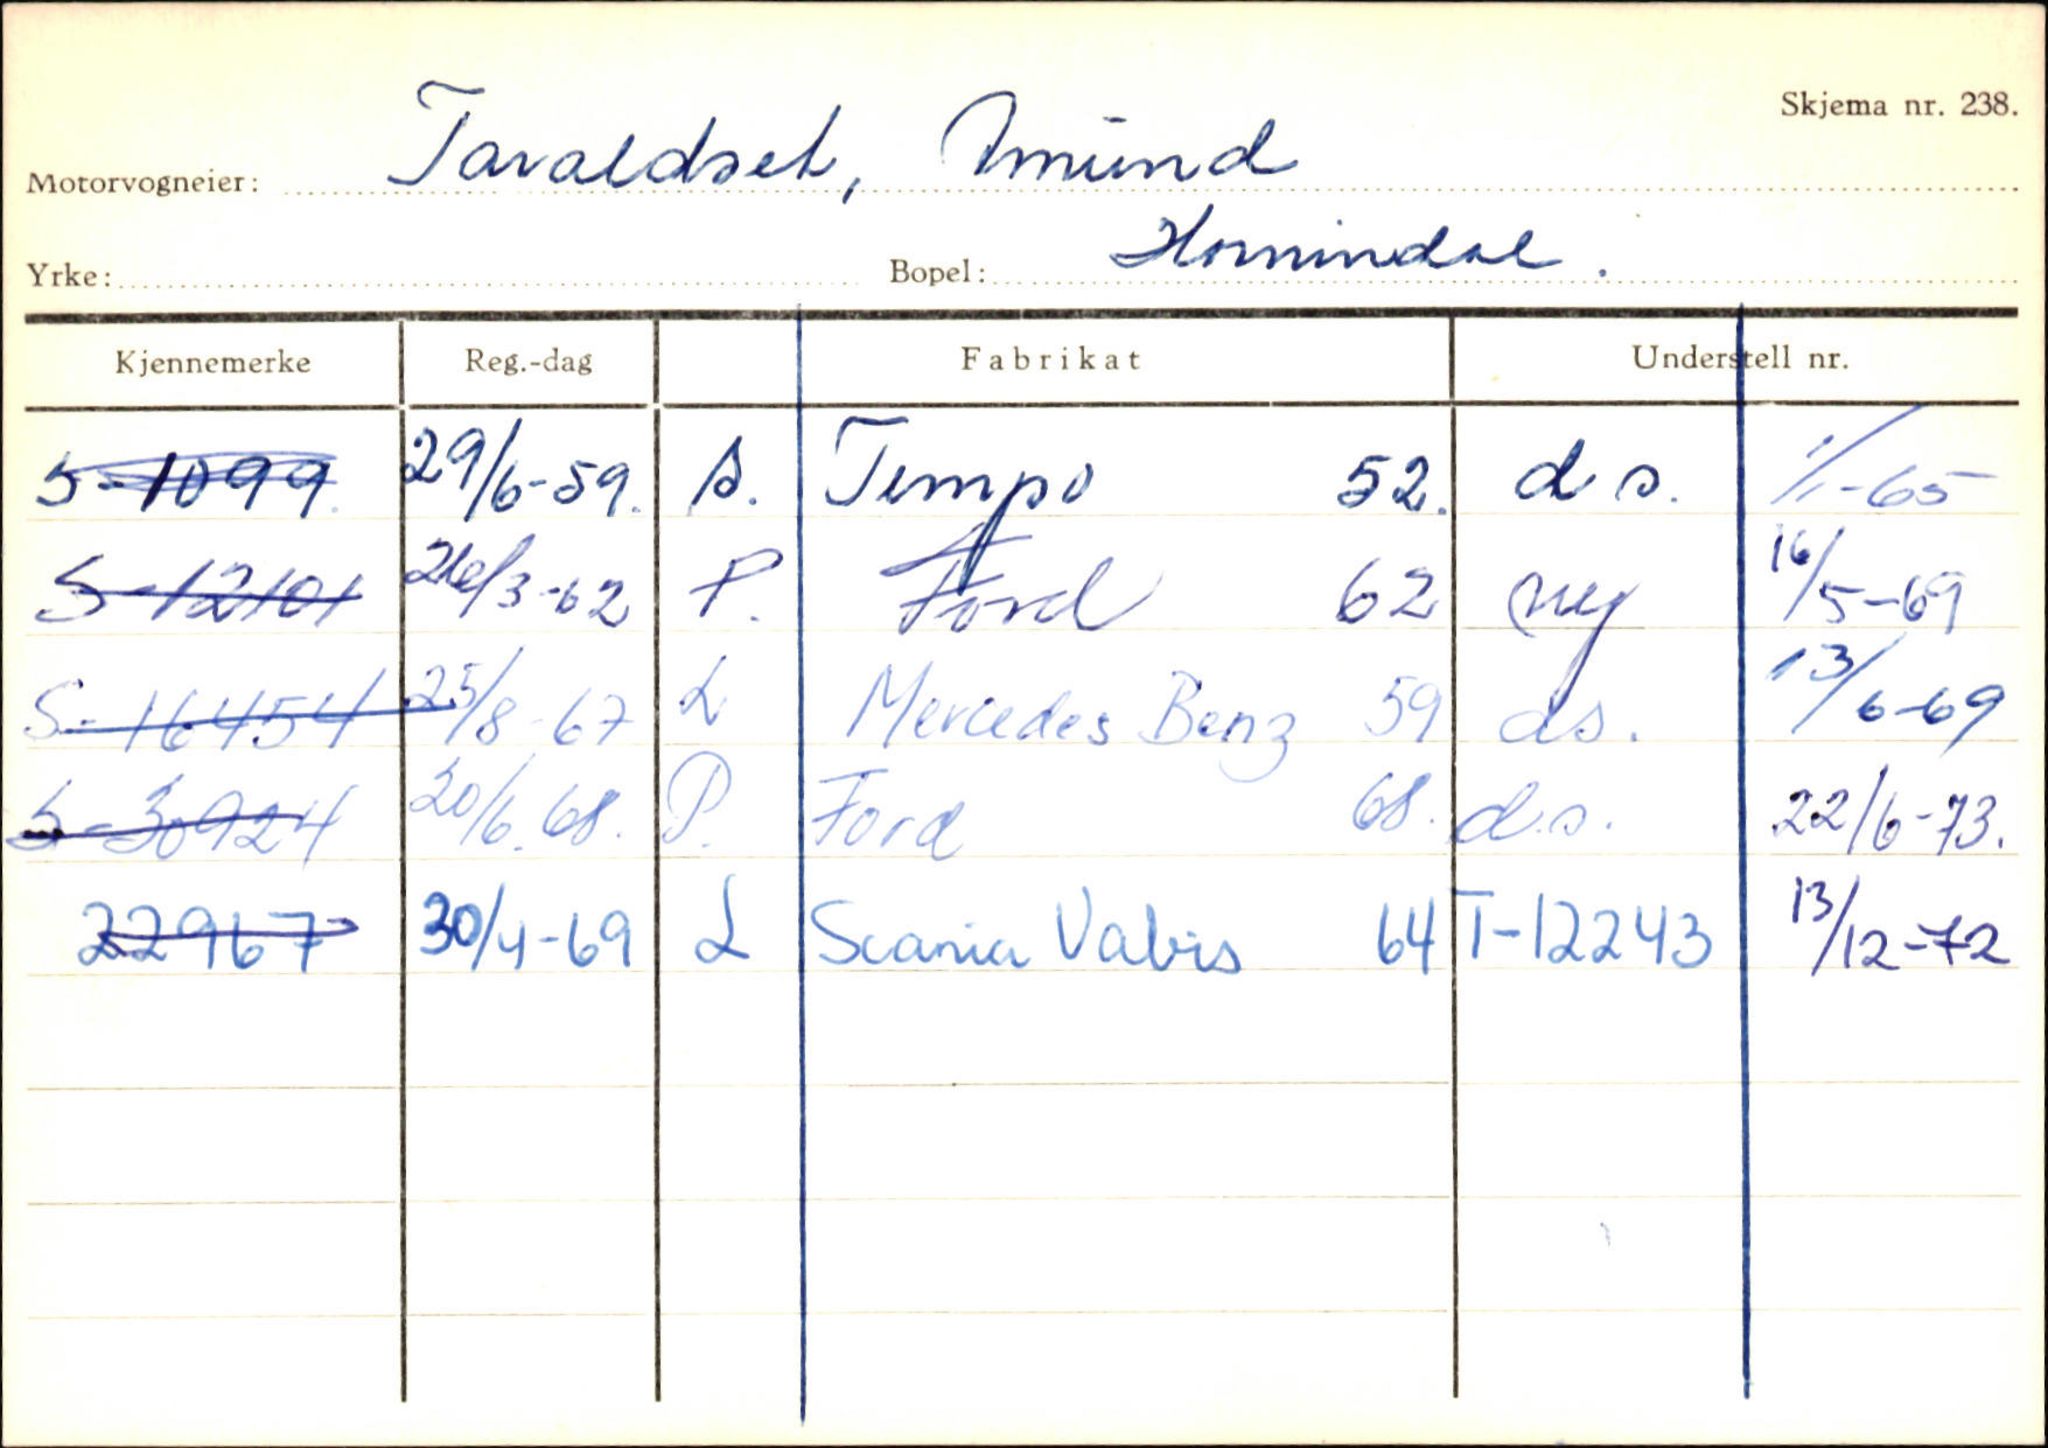 Skjema nr. 238.
Motorvogneier: Taraldset, Amund
Yrke: Bopel: Hornindal.
Kjennemerke Reg.-dag Fabrikat Understell nr.
S-1099. 29/6-59. S. Tempo 52. d s. 1/1-65
S-12101 26/3-62 P. Ford 62 ny 16/5-69
S-16454 25/8-67 L Mercedes Benz 59 ds. 13/6-69
S-30924 20/6.68. P. Ford 68. d.s. 22/6-73.
22967 30/4-69 L Scania Vabis 64 T-12243 13/12-72